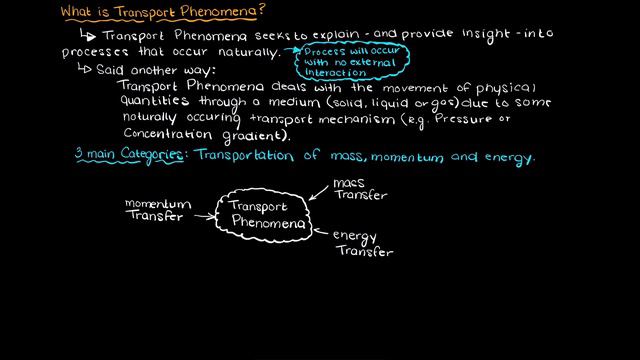 What is Transport Phenomena?
Transport Phenomena seeks to explain - and provide insight - into
processes that occur naturally.
Process will occur
with no external
Interaction
Said another way:
Transport Phenomena deals with the movement of physical
Quantities through a medium (solid, liquid or gas) due to some
naturally occuring transport mechanism (e.g. Pressure or
Concentration gradient).
3 main Categories: Transportation of mass, momentum and energy.
mass
Transfer
momentum
Transfer
Transport
Phenomena
energy
Transfer